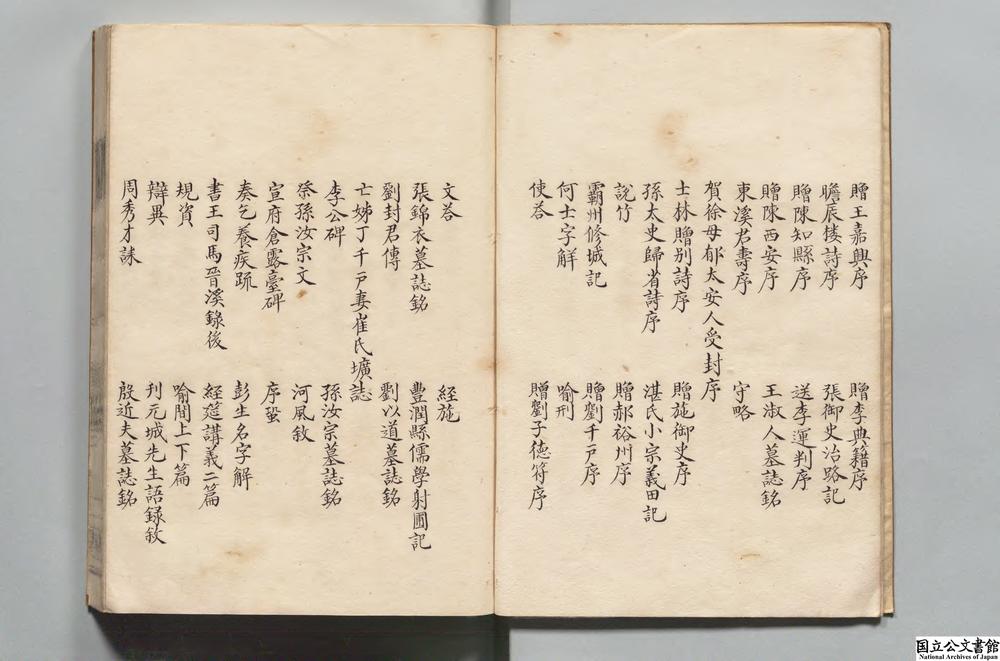 贈王嘉興序
贈李典籍序
瞻辰楼詩序
張御史治路記
贈陳知縣序
送李運判序
贈陳西安序
王淑人墓誌銘
東溪君壽序
守略
賀徐母郁太安人受封序
士林贈别詩序
贈施御史序
孫太史歸省詩序
湛氏小宗義田記
說竹
贈郝裕州序
霸州修城記
贈劉千戸序
何士字解
喻刑
使荅
贈劉子德符序
文荅
經施
張錦衣墓誌銘
豐潤縣儒學射圃記
劉封君傳
劉以道墓誌銘
亡姊丁千戸妻崔氏壙誌
李公碑
孫汝宗墓誌銘
祭孫汝宗文
河風敘
宣府倉露臺碑
序蛩
奏乞養疾疏
彭生名字解
書王司馬晉溪錄後
経筵講義二篇
規資
喻問上下篇
辯異
刋元城先生語録敘
周秀才誄
殷近夫墓誌銘
国立公文書館
National Archives of Japan